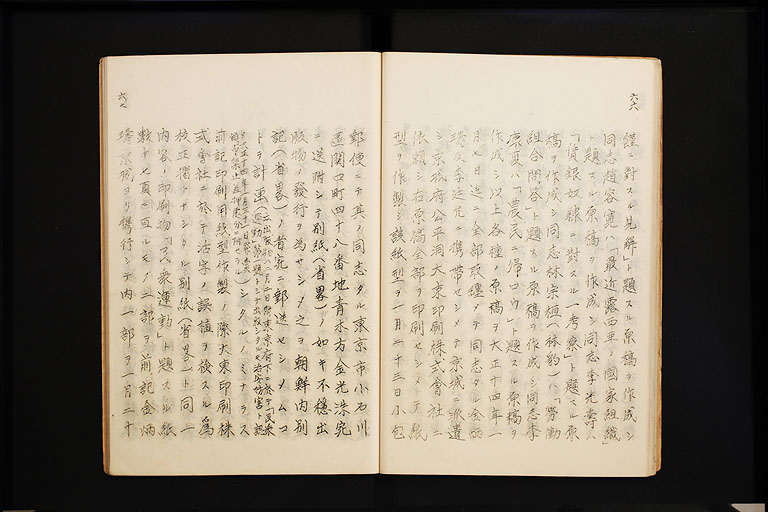 六六
經ニ對スル見解」ト題スル原稿ヲ作成シ
同志趙容寛ハ「最近露西亜ノ國家組織」
ト題スル原稿ヲ作成シ同志李光壽ハ
「賃銀奴隷ニ對スル一考察」ト題スル原
稿ヲ作成シ同志林宗桓(林豹)ハ「勞働
組合問答」ト題スル原稿ヲ作成シ同志李
康夏ハ「農民ニ帰ロウ」ト題スル原稿ヲ
作成シ以上各種ノ原稿ヲ大正十四年一
月七日迄ニ全部取纏メテ同志タル金炳
璹及李廷允ニ携帯セシメテ京城ニ派遣
シ京城府公平洞大東印刷株式會社ニ
依頼シ右原稿全部ヲ印刷セシメテ紙
型ヲ作製シ該紙型ヲ一月二十三日小包
六七
郵便ニテ其ノ同志タル東京市小石川
區関口町四十八番地青木方金光洙宛
ニ送附シテ別紙(省畧)ノ如キ不穏出
版物ノ發行ヲ為サシメ之ヲ朝鮮内別
記(省畧)ノ者宛ニ郵送セシメムコ
トヲ計画
シタルノミナラス
前記印刷用紙型作製ノ際大東印刷株
式會社ニ於テ活字ノ誤植ヲ検スル為
校正摺トナシタル別紙(省畧)ト同一
内容ノ印刷物「コノ衆運動」ト題スル紙
數十七頁ニ亘ルモノ二部ヲ前記金炳
璹京城ヨリ携行シテ内一部ヲ一月二十